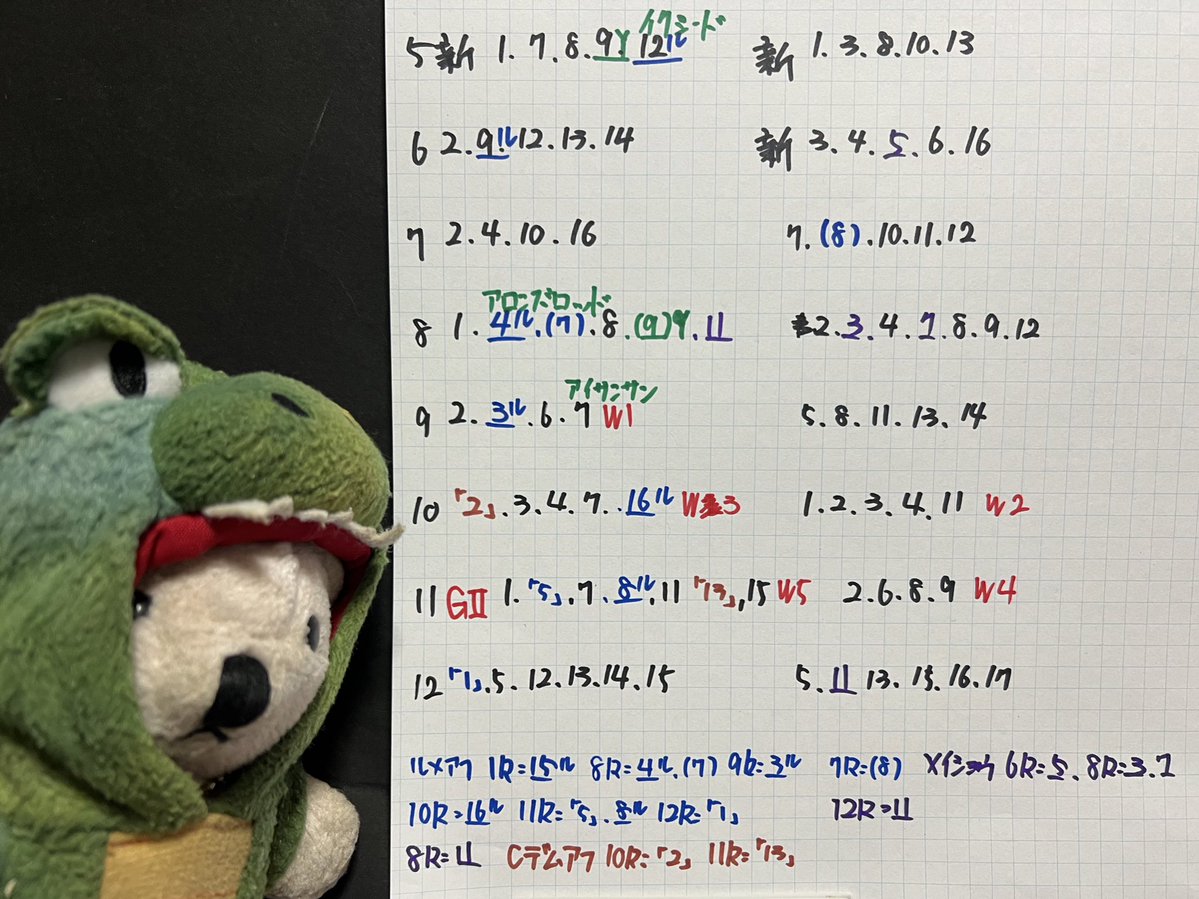 イクシード
5 新 1.7.8.9Y.12ル 新 1.3.8.10.13
6 2.9ル.12.13.14 新 3.4.5.6.16
7 2.4.10.16 7.(8).10.11.12
アロンズロッド
8 1.4ル.(7).8.(9)Y.11 2.3.4.7.8.9.12
アイサンサン
9 2.3ル.6.7 W1 5.8.11.13.14
10 「2」.3.4.7.16ル W3 1.2.3.4.11 W2
11 GⅡ 1.「5」.7.8ル.11「13」.15 W5 2.6.8.9 W4
12 「1」.5.12.13.14.15 5.11 13.15.16.17
ルメアフ 1R=15ル 8R=4ル.(7) 9R=3ル 7R=(8) メイショウ 6R=5.8R=3.7
10R=16ル 11R=「5」.8ル 12R=「1」 12R=11
8R=11 Cデムアフ 10R=「2」 11R=「13」